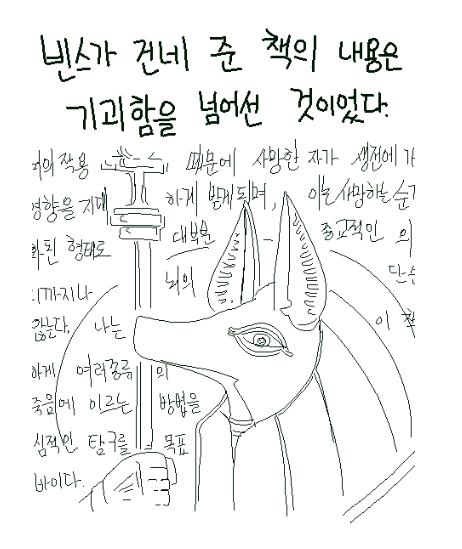 빈스가 건네 준 책의 내용은
기괴함을 넘어선 것이었다.
의 작용 때문에 사망한 자가 생전에 가
영향을 지대하게 받게 되며, 이는 사망하는 순
된 형태로 대부분 종교적인 의
뇌의
까지나
않는다. 나는 이 책
하게 여러종류의
죽음에 이르는 방법을
심적인 탐구를 목표
바이다.